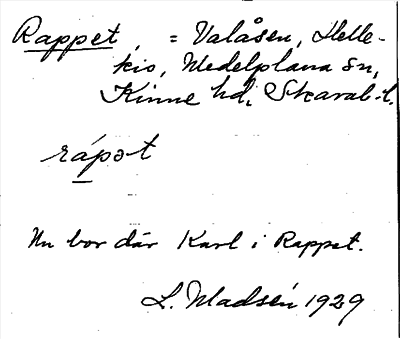 Rappet, = Valåsen, Helle-
kis, Medelplana sn,
Kinne hd, Skarab. l.
rápət
Nu bor där Karl i Rappet.
L. Madsén 1929